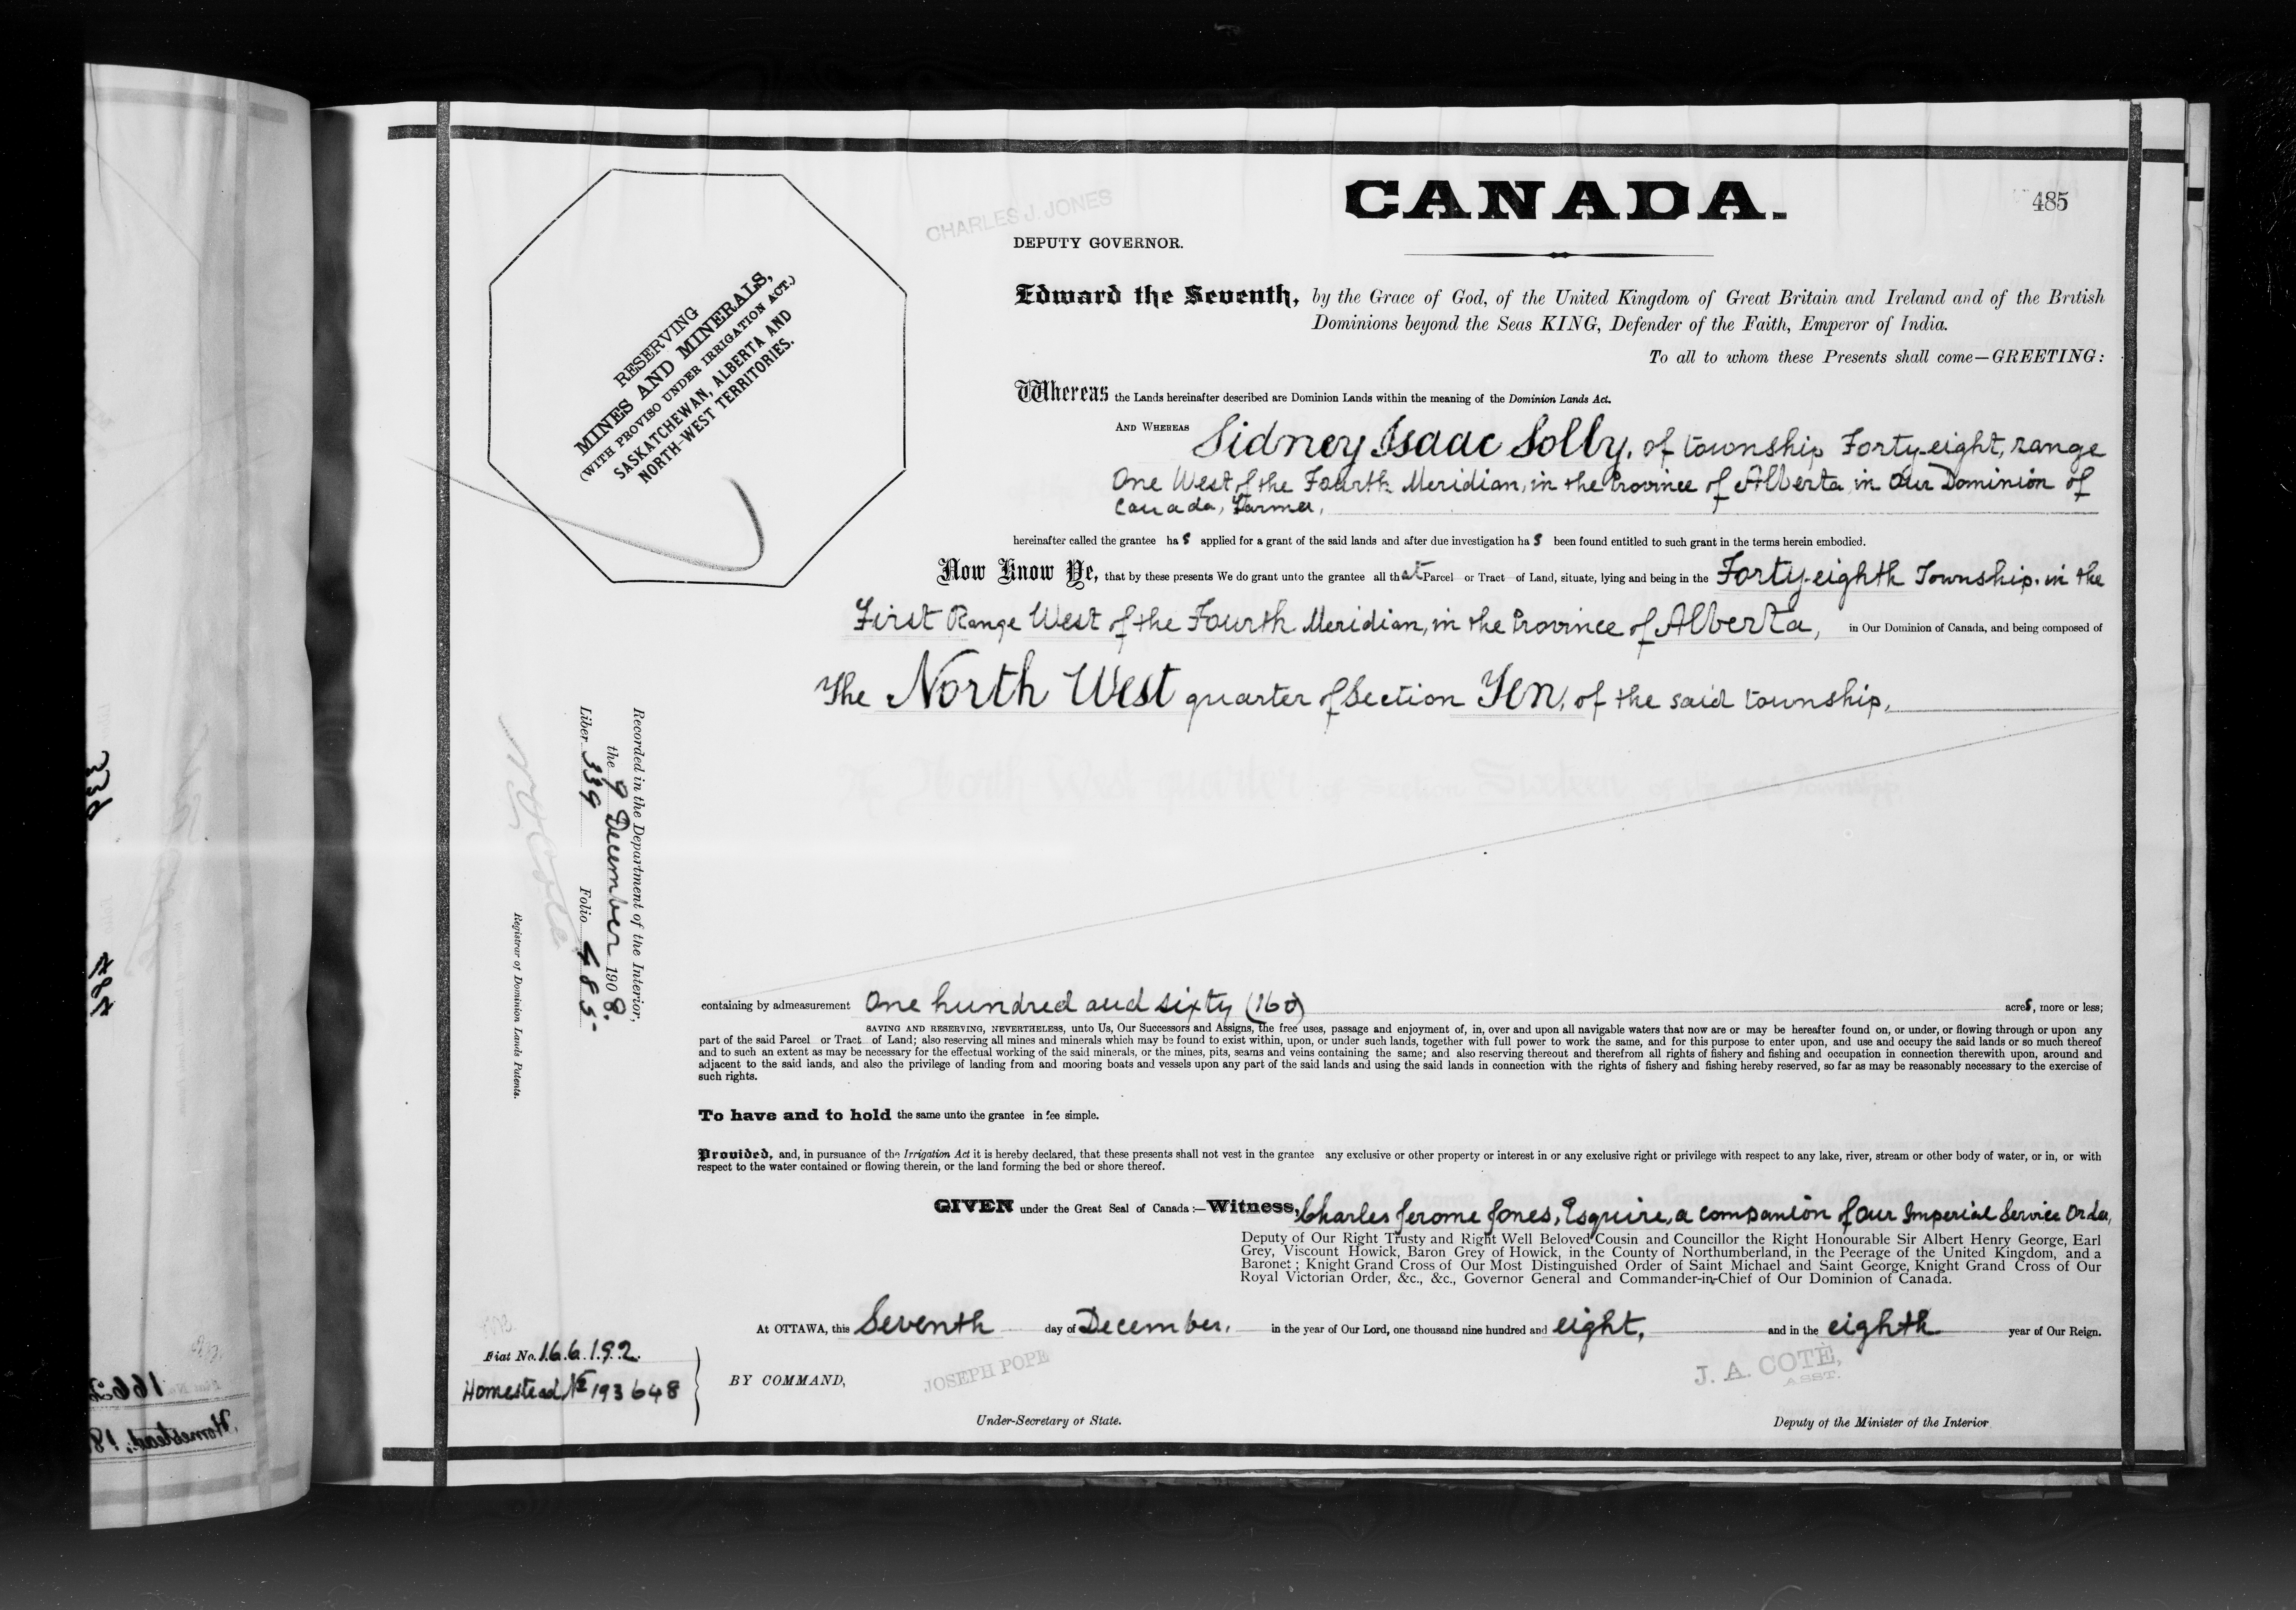 CANADA.
485
CHARLES J. JONES
DEPUTY GOVERNOR.
RESERVING
MINES AND MINERALS,
(WITH PROVISO UNDER IRRIGATION ACT.)
SASKATCHEWAN, ALBERTA AND
NORTH-WEST TERRITORIES.
Edward the Seventh, by the Grace of God, of the United Kingdom of Great Britain and Ireland and of the British
Dominions beyond the Seas KING, Defender of the Faith, Emperor of India.
To all to whom these Presents shall come—GREETING:
Whereas the Lands hereinafter described are Dominion Lands within the meaning of the Dominion Lands Act.
AND WHEREAS Sidney Isaac Solly, of township Forty-eight, range
One West of the Fourth Meridian, in the Province of Alberta, in Our Dominion of
Canada, Farmer,
hereinafter called the grantee has applied for a grant of the said lands and after due investigation has been found entitled to such grant in the terms herein embodied.
Now Know Ye, that by these presents We do grant unto the grantee all that Parcel or Tract of Land, situate, lying and being in the Forty-eighth Township, in the
First Range West of the Fourth Meridian, in the Province of Alberta, in Our Dominion of Canada, and being composed of
The North West quarter of Section Ten, of the said township,
containing by admeasurement One hundred and sixty (160) acres, more or less;
SAVING AND RESERVING, NEVERTHELESS, unto Us, Our Successors and Assigns, the free uses, passage and enjoyment of, in, over and upon all navigable waters that now are or may be hereafter found on, or under, or flowing through or upon any
part of the said Parcel or Tract of Land; also reserving all mines and minerals which may be found to exist within, upon, or under such lands, together with full power to work the same, and for this purpose to enter upon, and use and occupy the said lands or so much thereof
and to such an extent as may be necessary for the effectual working of the said minerals, or the mines, pits, seams and veins containing the same; and also reserving thereout and therefrom all rights of fishery and fishing and occupation in connection therewith upon, around and
adjacent to the said lands, and also the privilege of landing from and mooring boats and vessels upon any part of the said lands and using the said lands in connection with the rights of fishery and fishing hereby reserved, so far as may be reasonably necessary to the exercise of
such rights.
To have and to hold the same unto the grantee in fee simple.
Provided, and, in pursuance of the Irrigation Act it is hereby declared, that these presents shall not vest in the grantee any exclusive or other property or interest in or any exclusive right or privilege with respect to any lake, river, stream or other body of water, or in, or with
respect to the water contained or flowing therein, or the land forming the bed or shore thereof.
GIVEN under the Great Seal of Canada:—Witness, Charles Jerome Jones, Esquire, a companion of Our Imperial Service Order,
Deputy of Our Right Trusty and Right Well Beloved Cousin and Councillor the Right Honourable Sir Albert Henry George, Earl
Grey, Viscount Howick, Baron Grey of Howick, in the County of Northumberland, in the Peerage of the United Kingdom, and a
Baronet; Knight Grand Cross of Our Most Distinguished Order of Saint Michael and Saint George, Knight Grand Cross of Our
Royal Victorian Order, &c., &c., Governor General and Commander-in-Chief of Our Dominion of Canada.
At OTTAWA, this Seventh day of December, in the year of Our Lord, one thousand nine hundred and eight, and in the eighth year of Our Reign.
BY COMMAND,
JOSEPH POPE
Under-Secretary of State.
J. A. COTÉ,
ASST.
Deputy of the Minister of the Interior
Fiat No. 166192.
Homestead, No 193648
Recorded in the Department of the Interior,
the 9 December 1908.
Liber 339 Folio 485
Registrar of Dominion Lands Patents.